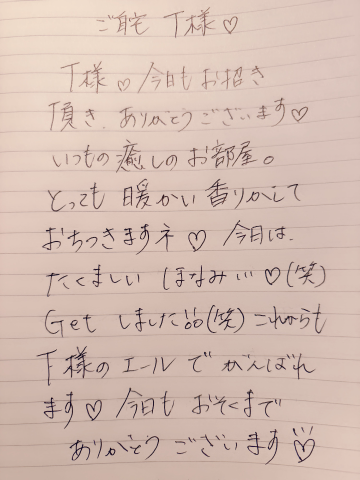 ご自宅 T様♡
T様♡今日もお招き
頂き、ありがとうございます♡
いつもの癒しのお部屋。
とっても暖かい香りがして
おちつきますネ♡ 今日は、
たくましい ほなみ…♡(笑)
Get しました(笑)これからも
T様のエールで がんばれ
ます♡ 今日も おそくまで
ありがとう ございます♡